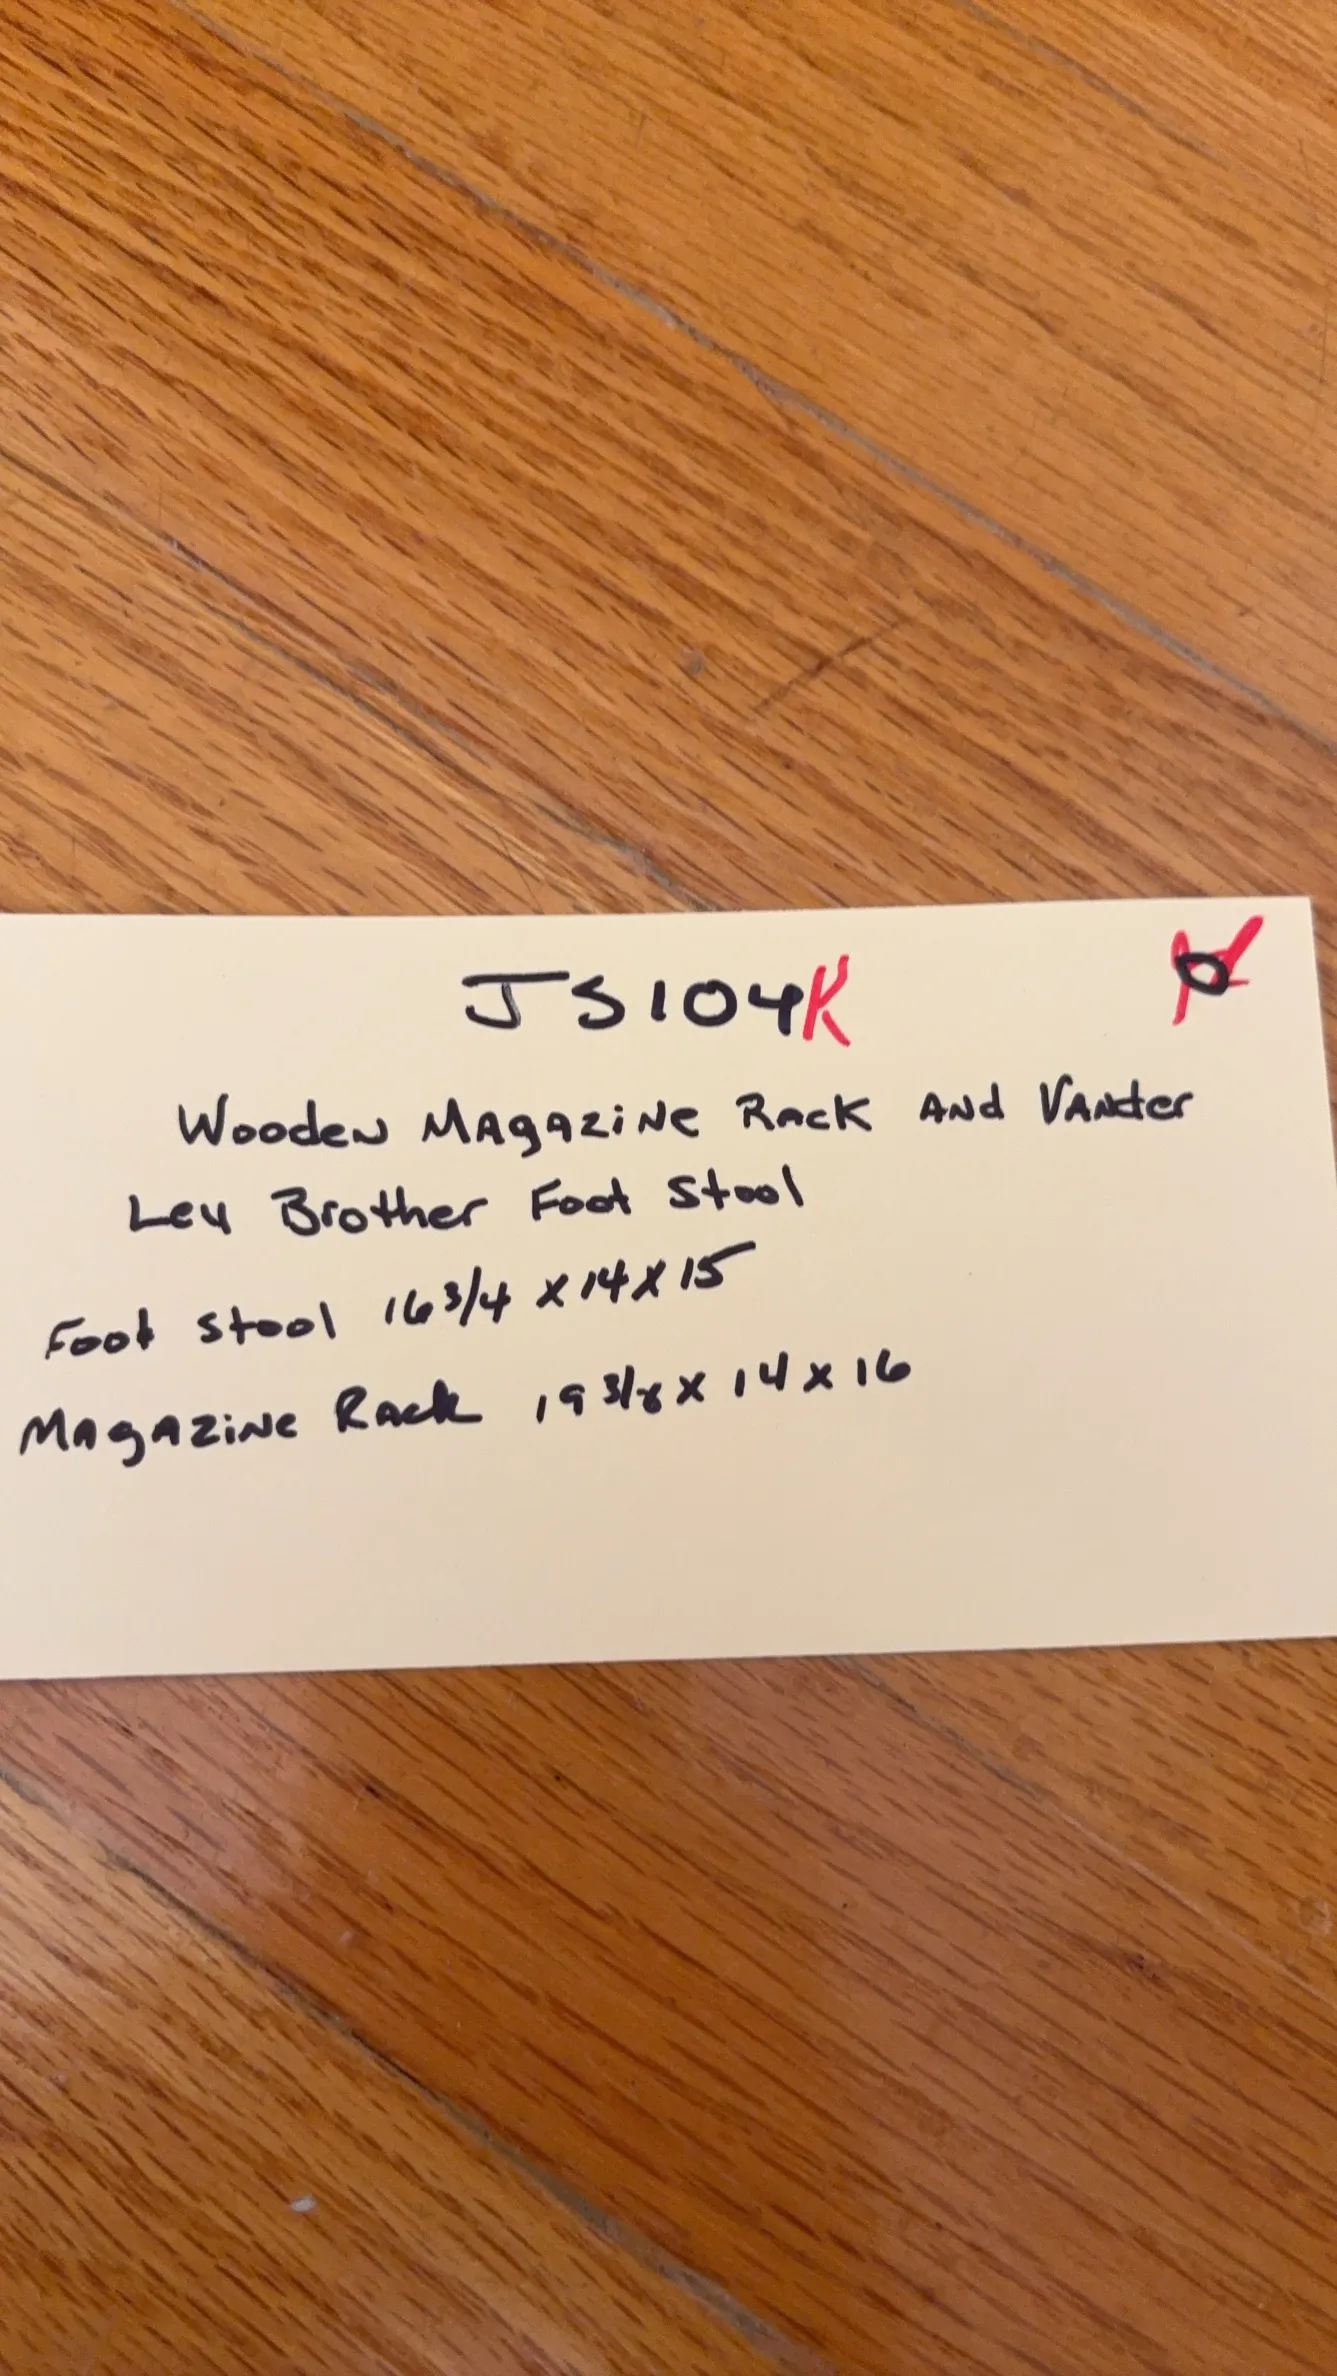 JS104K
Wooden Magazine Rack And Vander
Ley Brother Foot Stool
Foot stool 16 3/4 x 14 x 15
Magazine Rack 19 3/8 x 14 x 16